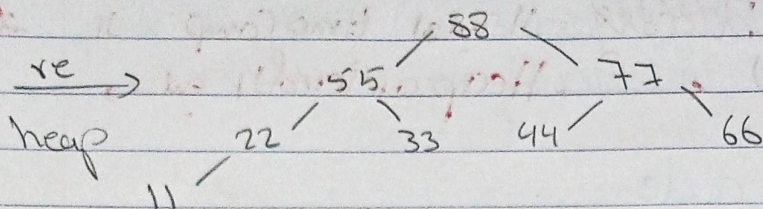 88
re 55 77
heap 22 33 44 66
11